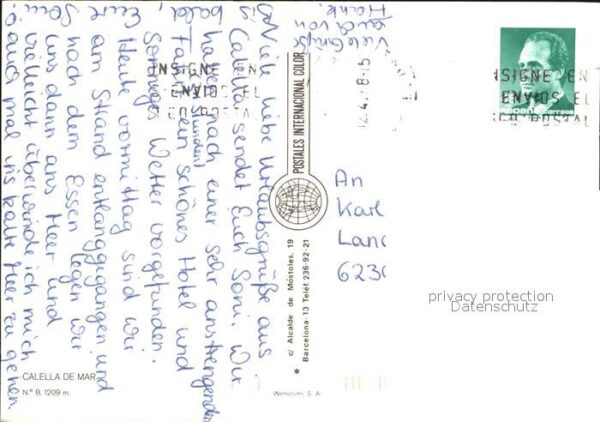 Viele liebe Urlaubsgrüße aus
Calella sendet Euch Soni. Wir
haben nach einer sehr anstrengenden
(Stunden)
Fahrt ein schönes Hotel und
sonniges Wetter vorgefunden.
Heute vormittag sind wir
am Strand entlanggegangen und
nach dem Essen legen wir
uns dann ans Meer und
vielleicht überwinde ich mich
auch mal ins kalte Meer zu gehen.
bald,
Eure
Soni
Viele Grüße
auch von
CALELLA DE MAR
N.º B. 1209 m.
POSTALES INTERNACIONAL COLOR
c/ Alcalde de Móstoles, 19
Barcelona-13 Teléf. 236-92-21
INSIGNE EN
ENVIOS EL
COD POSTAL
12.4.
8-15
INSIGNE EN
ENVIOS EL
COD POSTAL
correos
An
Karl
Lan
623
privacy protection
Datenschutz